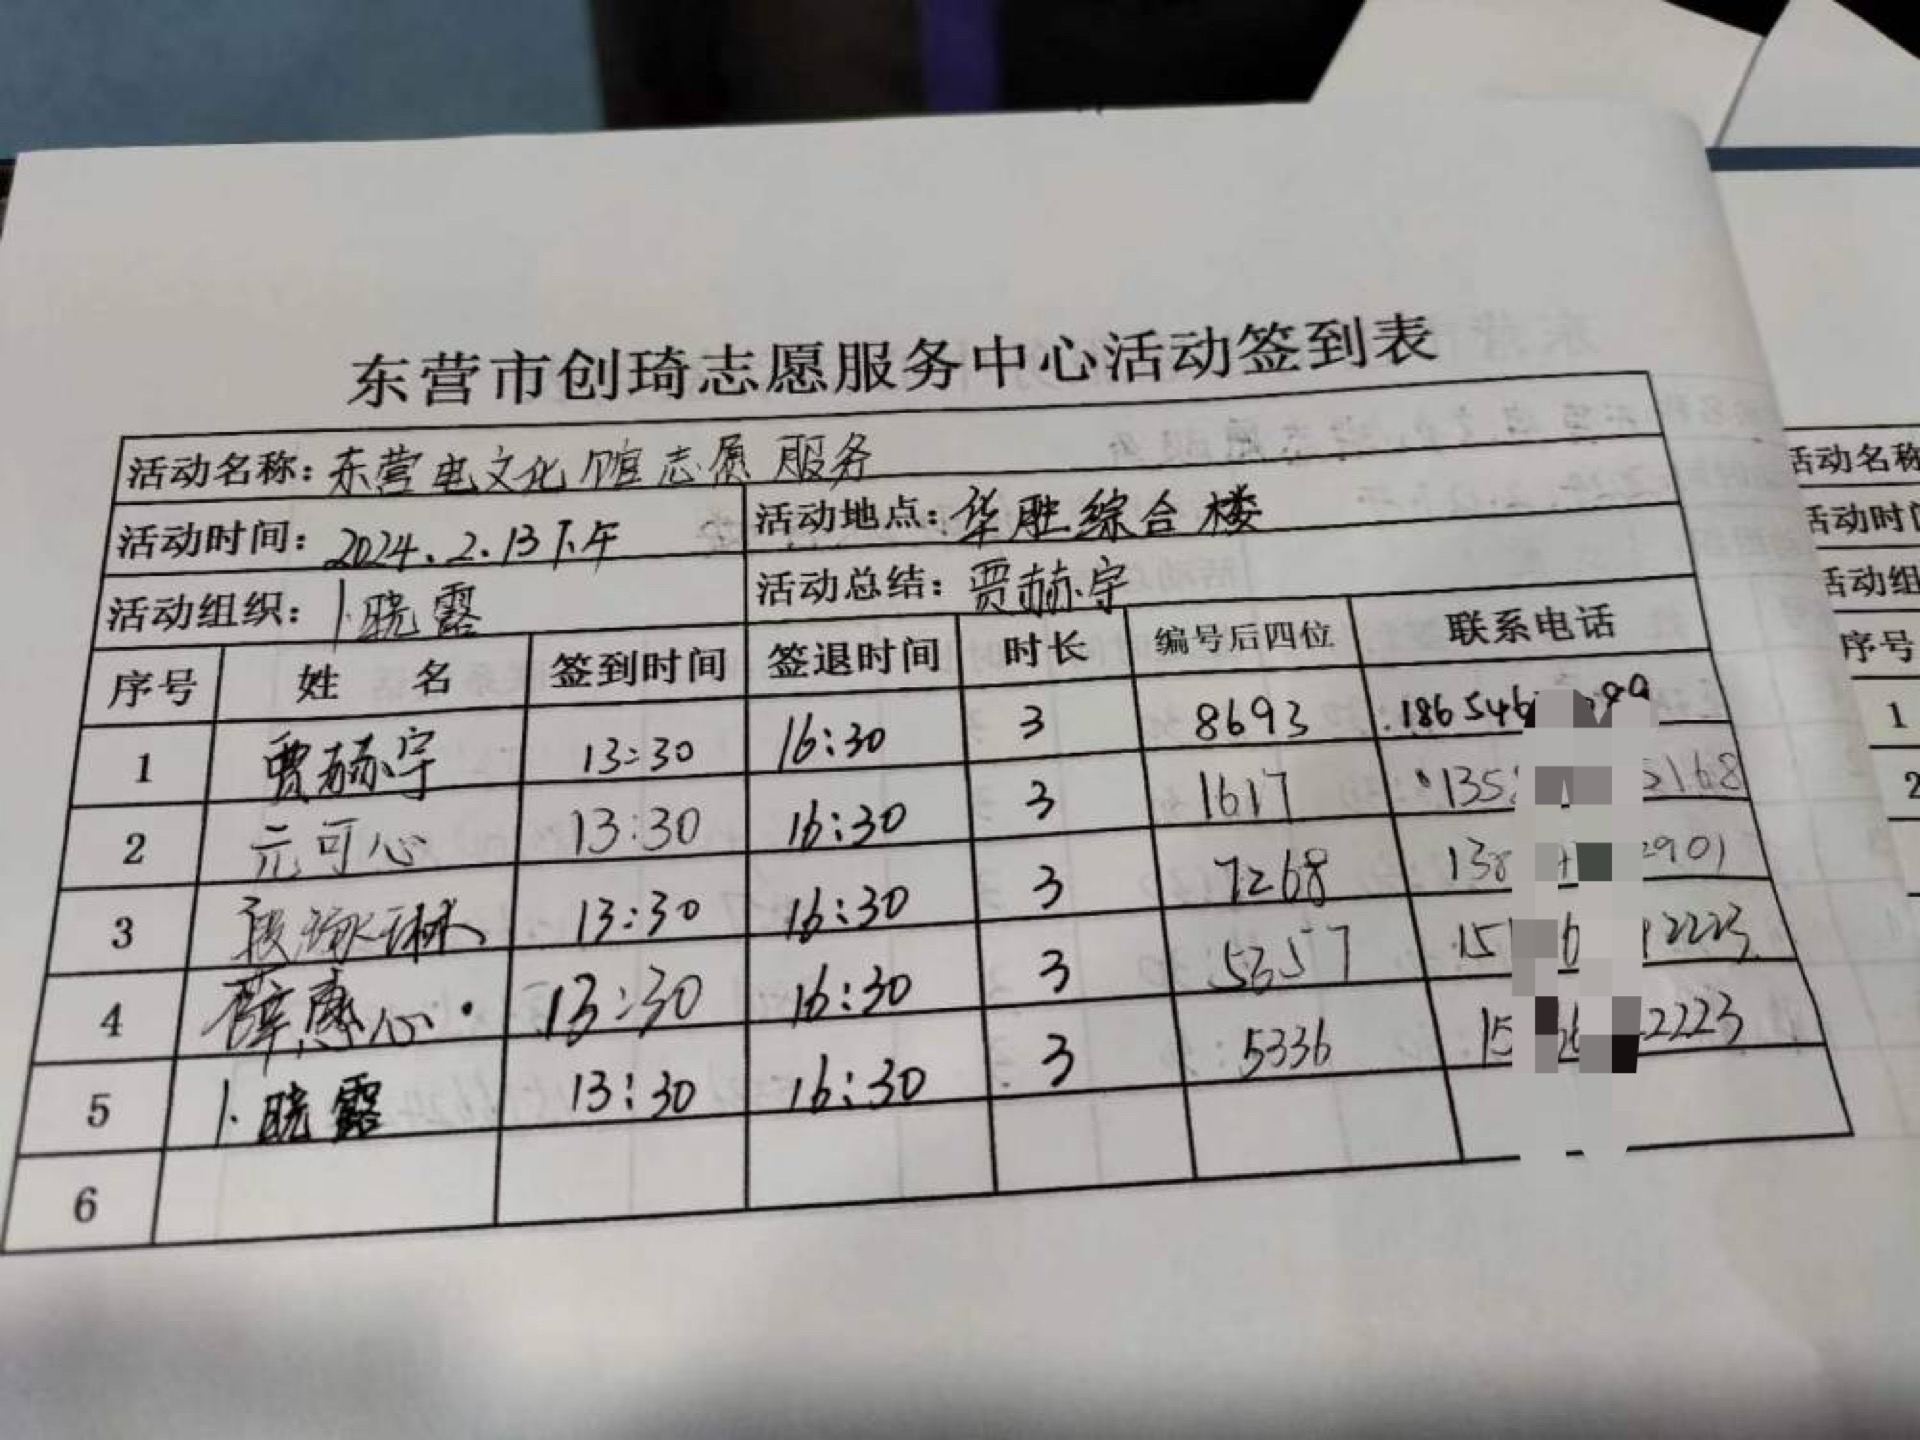 东营市创琦志愿服务中心活动签到表
活动名称：东营电文化馆志质服务
活动时间：2024.2.13下午 活动地点：华胜综合楼
活动组织：卜晓露 活动总结：贾赫宇
序号 姓名 签到时间 签退时间 时长 编号后四位 联系电话
1 贾赫宇 13:30 16:30 3 8693 186546
2 亓可心 13:30 16:30 3 1617 135 5168
3 13:30 16:30 3 7268 138 2901
4 薛惠心 13:30 16:30 3 5357 15 6 2223
5 卜晓露 13:30 16:30 3 5336 15 6 2223
6
活动名称
活动时间
活动组
序号
1
2